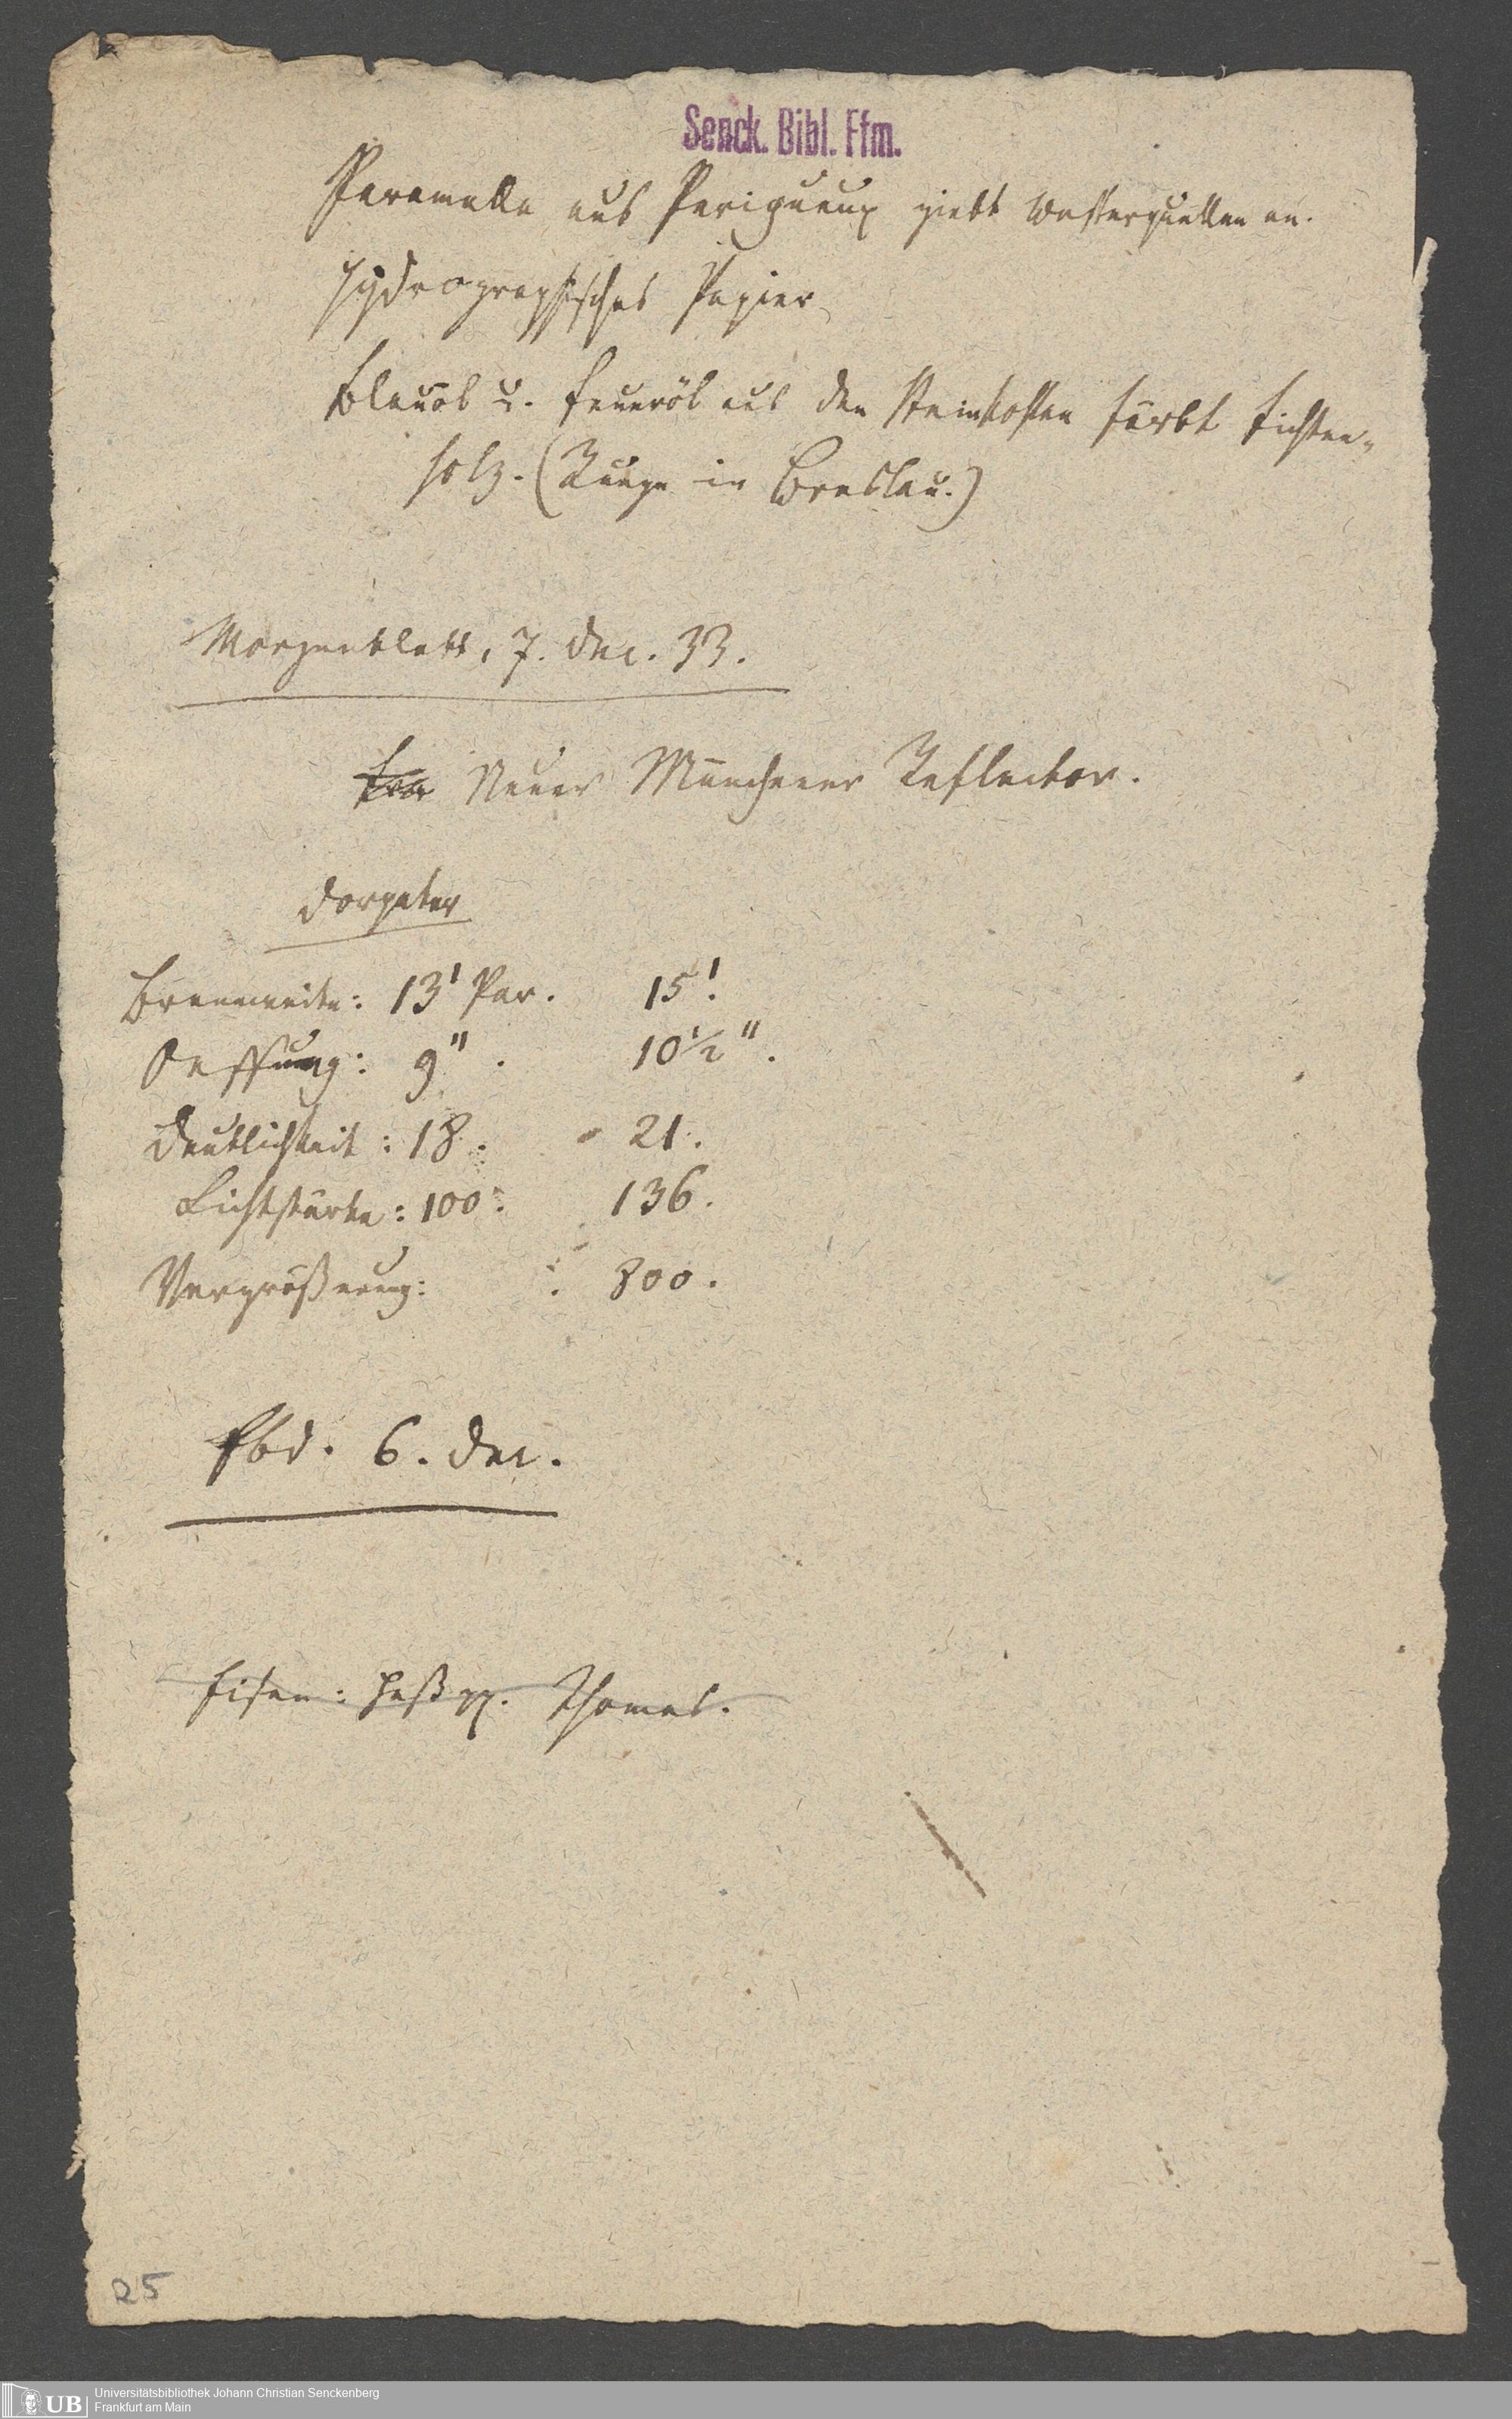 Senck. Bibl. Ffm.
Paramelle aus Perigueux giebt Wasserquellen an.
Hydrographisches Papier
Blauöl u. Feueröl aus den Steinkohlen färbt Fichten-
holz. (Runge in Breslau.)
Morgenblatt, 7. Dec. 33.
Neuer Münchener Reflector.
Dorpater
Brennweite: 13' Par. 15'.
Oeffnung: 9". 10 1/2".
Deutlichkeit: 18. 21.
Lichtstärke: 100. 136.
Vergrößerung: 800.
Ebd. 6. Dec.
Eisen: Heß pp. Thomas.
25
UB
Universitätsbibliothek Johann Christian Senckenberg
Frankfurt am Main